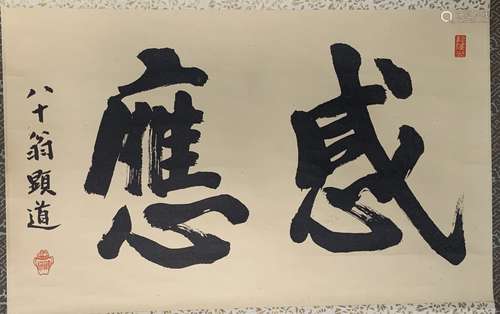 感應
八十翁顕道